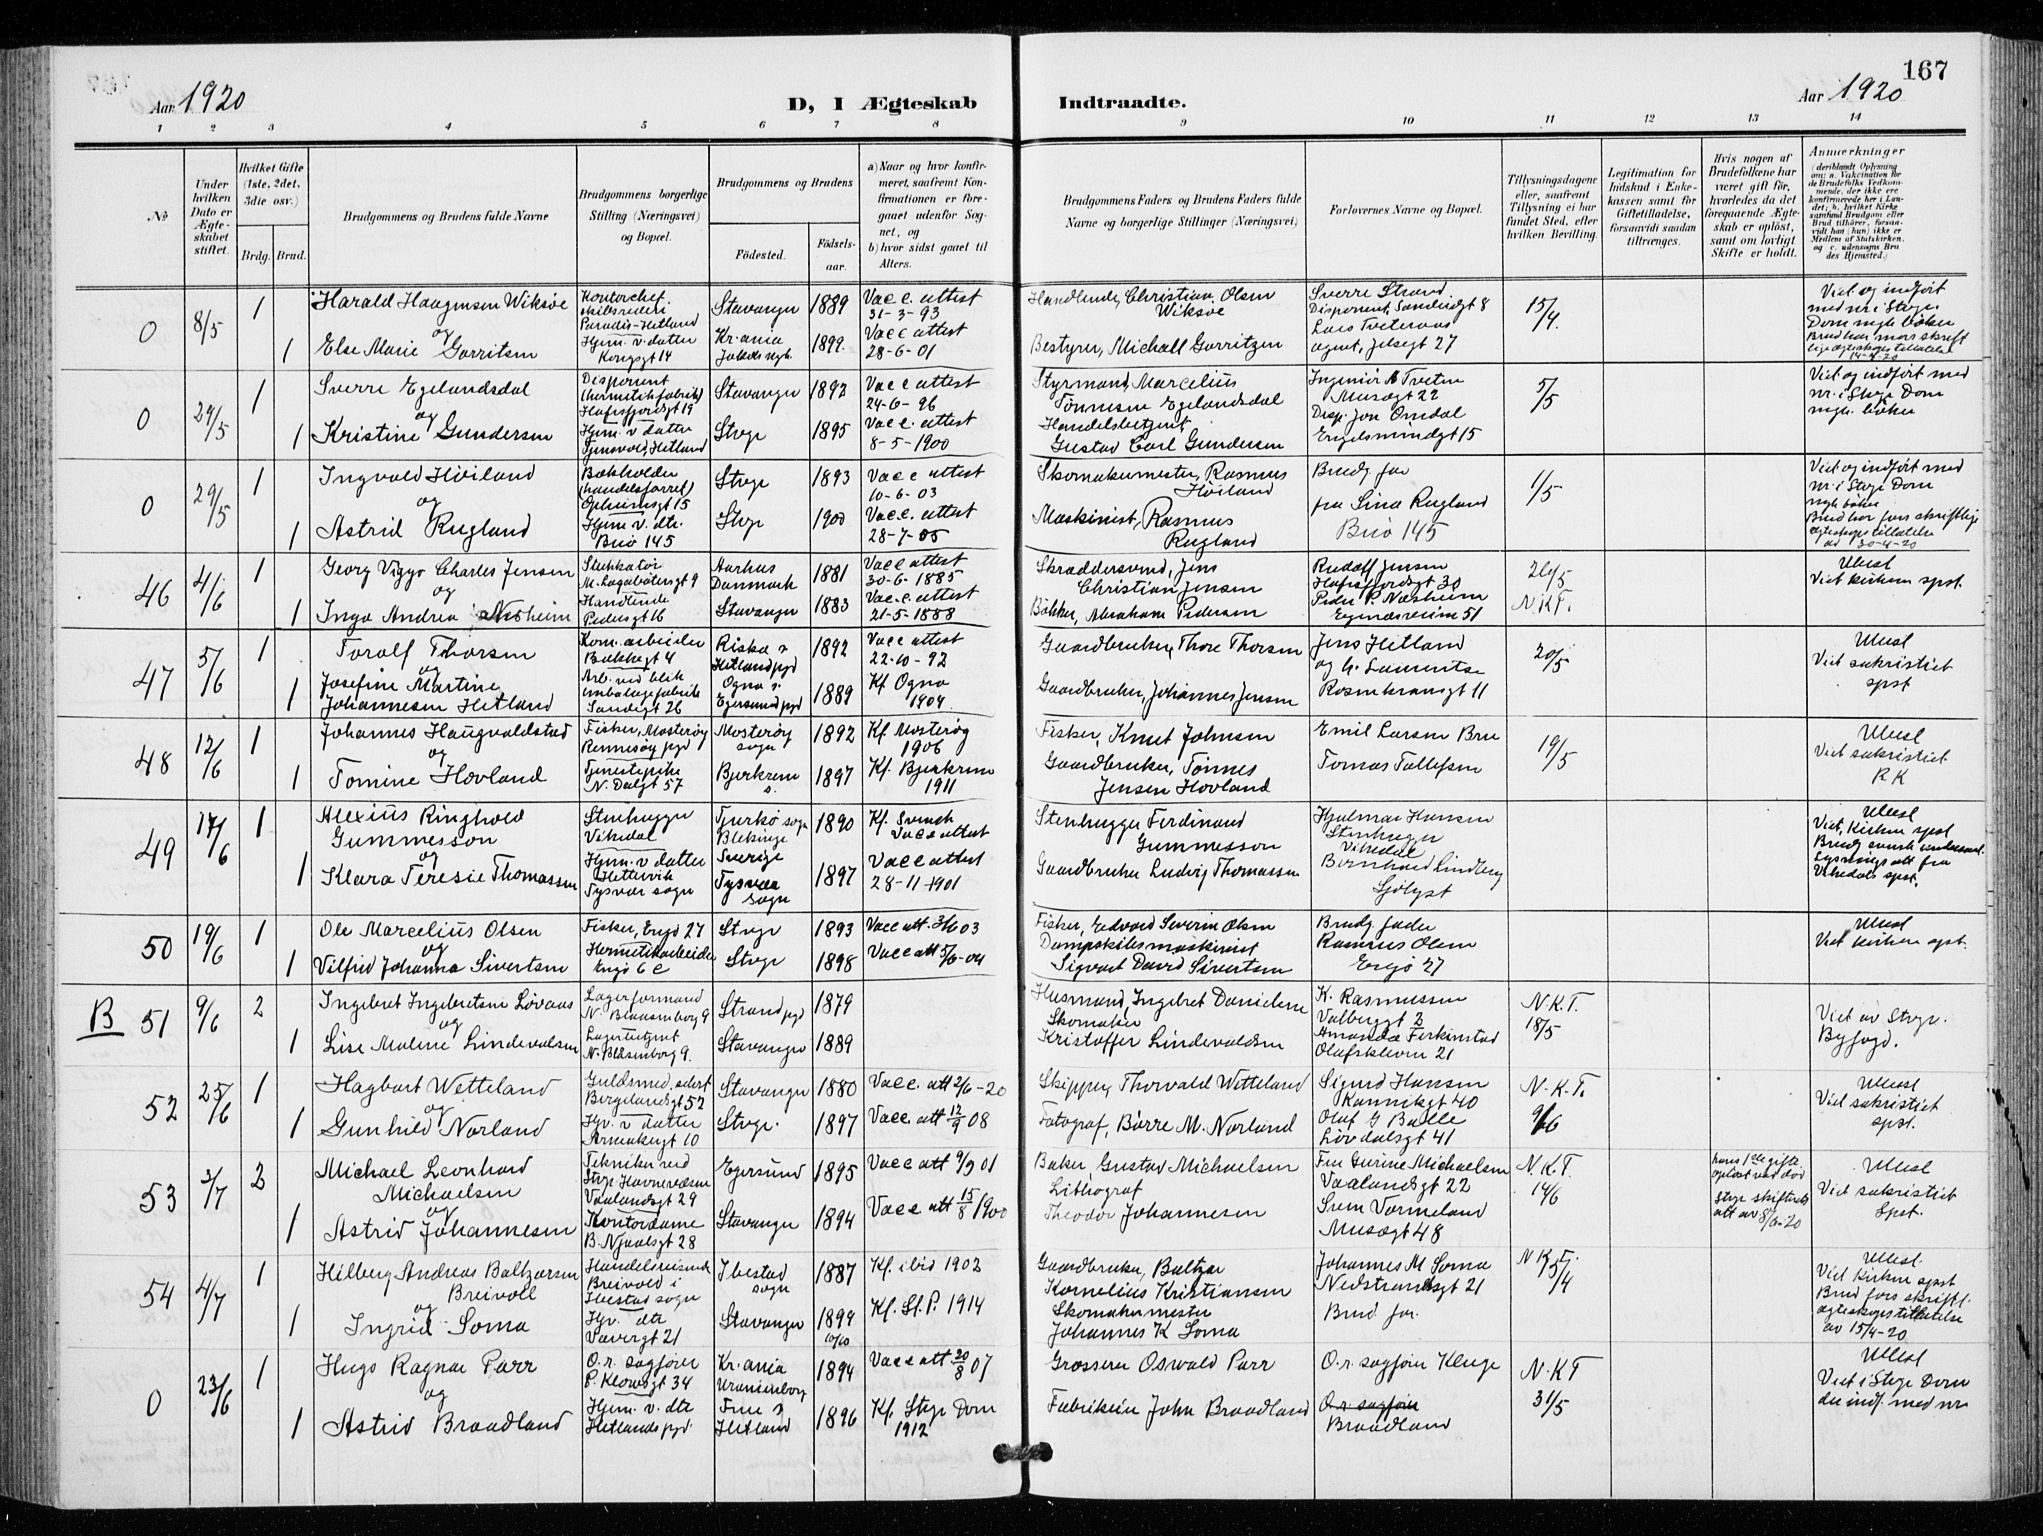 167
Aar 1920
D, I Ægteskab Indtraadte.
Aar 1920
1 2 3 4 5 6 7 8 9 10 11 12 13 14
№
Under hvilken Dato er Ægteskabet stiftet.
Hvilket Gifte (1ste, 2det, 3die osv.)
Brdg. Brud.
Brudgommens og Brudens fulde Navne
Brudgommens borgerlige Stilling (Næringsvei) og Bopæl.
Brudgommens og Brudens
Fødested.
Fødselsaar.
a) Naar og hvor konfirmeret, saafremt Konfirmationen er foregaaet udenfor Sognet, og
b) hvor sidst gaaet til Alters.
Brudgommens Faders og Brudens Faders fulde Navne og borgerlige Stillinger (Næringsvei)
Forlovernes Navne og Bopæl.
Tillysningsdagene eller, saafremt Tillysning ei har fundet Sted, efter hvilken Bevilling.
Legitimation for Indskud i Enkekassen samt for Giftetilladelse, forsaavidt saadan tiltrænges.
Hvis nogen af Brudefolkene har været gift før, hvorledes da det foregaaende Ægteskab er opløst, samt om lovligt Skifte er holdt.
Anmærkninger
(deriblandt Oplysning om: a. Vakcination for de Brudefolks Vedkommende, der ikke ere konfirmerede her i Landet; b. hvilket Kirkesamfund Brudgom eller Brud tilhører, forsaavidt han (hun) ikke er Medlem af Statskirken, og c. udensogns Brudes Hjemsted.)
0 8/5 1 Harald Haagensen Wiksøe Kontorchef skibsrederi Paradis-Hetland Stavanger 1889 Vacc. attest 31-3-93 Handlende, Christian Olsen Wiksøe Sverre Strand Disponent, Sandeidgt 8 15/4. Viet og indført med nr i Stvgr. Dom mgh. bøker
og
1 Else Marie Gorritsen Hjem. v. datter Kongsgt 14 Kr.ania Jakobs mgh. 1899. Vacc attest 28-6-01 Bestyrer, Michall Gorritzen Lars Tveteraas agent, Jelsegt 27 Brud har mors skriftlige ægteskapstillatelse 14-4-20
0 29/5 1 Sverre Egelandsdal Disponent (hermetikfabrik) Hafrsfjordsgt 19 Stavanger 1892 Vacc attest 24-6-96 Styrmand, Marcelius Tønnesen Egelandsdal Ingeniør A Tveten Musægt 22 5/5 Viet og indført med nr. i Stvgr Dom mgh. bøker
og
1 Kristine Gundersen Hjem. v datter Tjensvold, Hetland Stvgr 1895 Vacc. attest 8-5-1900 Handelsbetjent Gustav Carl Gundersen Disp. Jon Omdal Engelsmindgt 15
0 29/5 1 Ingvald Høiland Bokholder (handelsforret) Opheimsgt 15 Stvgr 1893 Vacc attest 10-6-03 Skomakermester, Rasmus Høiland Brudg. far 1/5 Viet og indført med nr. i Stvgr Dom mgh bøker
og
1 Astrid Rugland Hjem. v. dtr. Buø 145 Stvgr 1900 Vacc. attest 28-7-05 Maskinist, Rasmus Rugland fra Sina Rugland Buø 145 Brud har fars skriftlige ægteskapstillatelse av 30-4-20
46 4/6 1 Georg Viggo Charles Jensen Stukkatør M. Lagabøtersgt 9 Aarhus Danmark 1881 Vacc attest 30-6-1885 Skræddersvend, Jens Christian Jensen Rudolf Jensen Hafrsfjordsgt 30 Ulæst Viet kirken spst.
og
1 Inga Andrea Nesheim Handlende Pedersgt 16 Stavanger 1883 Vac. c. attest 21-5-1888 Bøkker, Abraham Pedersen Peder P. Næsheim Egenæsveien 51 N.K.T.
47 5/6 1 Toralf Thorsen Kom. arbeider Bakkegt 4 Riska s Hetland pgd 1892 Vacc attest 22-10-92 Gaardbruker, Thore Thorsen Jens Hetland 20/5 Ulæst Viet sakristiet spst
og
1 Josefine Martine Johannesen Hetland Arb. ved blik embalagefabrik Sandeigt 26 Ogna s. Egersund pgd 1889 Kf Ogna 1904. Gaardbruker, Johannes Jensen og h. Laurentse Rosenkransgt 11
48 12/6 1 Johannes Haugvaldstad Fisker, Mosterøy Rennesøy pgd Mosterøy sogn 1892 Kf. Mosterøy 1906 Fisker, Knut Johnsen Emil Larsen Bru 19/5 Ulæst Viet sakristiet R K
og
1 Tomine Hovland Tjenestepike N. Dalgt 57 Bjerkrem s. 1897 Kf. Bjerkrem 1911 Gaardbruker, Tønnes Jensen Hovland Tomas Tollefsen
49 17/6 1 Alexius Ringhold Gummesson Stenhugger Vikedal Tjurkø sogn Blekinge Sverige 1890 Kf. Svensk Vacc attest Stenhugger Ferdinand Gummesson Hjalmar Hansen Stenhugger Vikedal Ulæst Viet, Kirken spst
og
1 Klara Teresie Thomassen Hjem. v datter Hettervik Tysvær sogn Tysvær sogn 1897 Vacc attest 28-11-1901 Gaardbruker Ludvig Thomassen Bernhard Lindberg Sjølyst Brudg svensk undersaat. Lysningsatt fra Vikedals spst.
50 19/6 1 Ole Marcelius Olsen Fisker, Engø 27 Stvgr 1893 Vacc att. 3/6 03 Fisker, Edvard Severin Olsen Brudg. fader Rasmus Olsen Engø 27 Ulæst Viet kirken spst.
og
1 Vilfrid Johanna Sivertsen Hermetikarbeider Engø 6 c Stvgr 1898 Vacc att 5/6-04 Dampskibsmaskinist Sigvart David Sivertsen
B 51 9/6 2 Ingebret Ingebretsen Løvaas Lagerformand N. Blaasenborg 9 Strand pgd 1879 Husmand, Ingebret Danielsen K. Rasmussen Valberggt 3 N.K.T. 18/5 Viet av Stvgr. Byfogd.
og
1 Lise Malene Lindevaldsen Lagerbetjent N. Blåsenborg 9. Stavanger 1889 Skomaker Kristoffer Lindevaldsen Amanda Ferkinstad Olafskleven 21
52 25/6 1 Hagbart Wetteland Guldsmed, arbst Bergelandsgt 52 Stavanger 1880 Vacc. att 2/6-20 Skipper, Thorvald Wetteland Sigurd Hansen Kannikgt 40 N.K.T. Ulæst Viet sakristiet spst.
og
1 Gunhild Norland Hjv. v datter Armakergt 10 Stvgr. 1897 Vacc att 12/9 08 Fotograf, Børre M. Norland Olaf G Balle Løvdalsgt 41 9/6
53 3/7 2 Michael Leonhard Michaelsen Tekniker ved Stvgr Havnevæsen Vaalandsgt 29 Egersund 1895 Vacc att 9/9 01 Baker, Gustav Michaelsen Fru Gurine Michaelsen Vaalandsgt 22 N.K.T. 14/6 hans 1ste gifte opløst ved død Stvgr skifteret att av 8/6-20 Ulæst Viet sakristiet Spst.
og
1 Astrid Johannesen Kontordame B. Njaalsgt 28 Stavanger 1894 Vacc att 15/8 1900 Lithograf Theodor Johannesen Svein Vormeland Musægt 48
54 4/7 1 Hilberg Andreas Baltzersen Breivoll Handelsreisende Breivold i Ibestad sogn Ibestad sogn 1887 Kf. ibid 1902 Gaardbruker, Baltzar Kornelius Kristiansen Johannes M Soma Nedstrandsgt 21 N.K.T. Ulæst. Viet kirken spst
og
1 Ingrid Soma Hjv. dtr Vævergt 21 Stavanger 1899 10/10 Kf. St. P. 1914 Skomakermester Johannes K Soma Brud far. Brud fars skriftl. ægteskapstillatelse av 15/4-20
0 23/6 1 Hugo Ragnar Parr O.r. sagfører P. Klowsgt 34 Kr.ania Uranienborg 1894 Vacc att 20/8 07 Grosserer Oswald Parr O.r. sagfører Kluge N.K.T 31/5 Ulæst Viet i Stvgr Dom
og
1 Astrid Braadland Hjem. v. dtr Hetlands pgd Frue s Hetland 1896 Kf. Stvgr Dom 1912 Fabrikeier John Braadland O.r. sagfører Braadland der indf. med nr